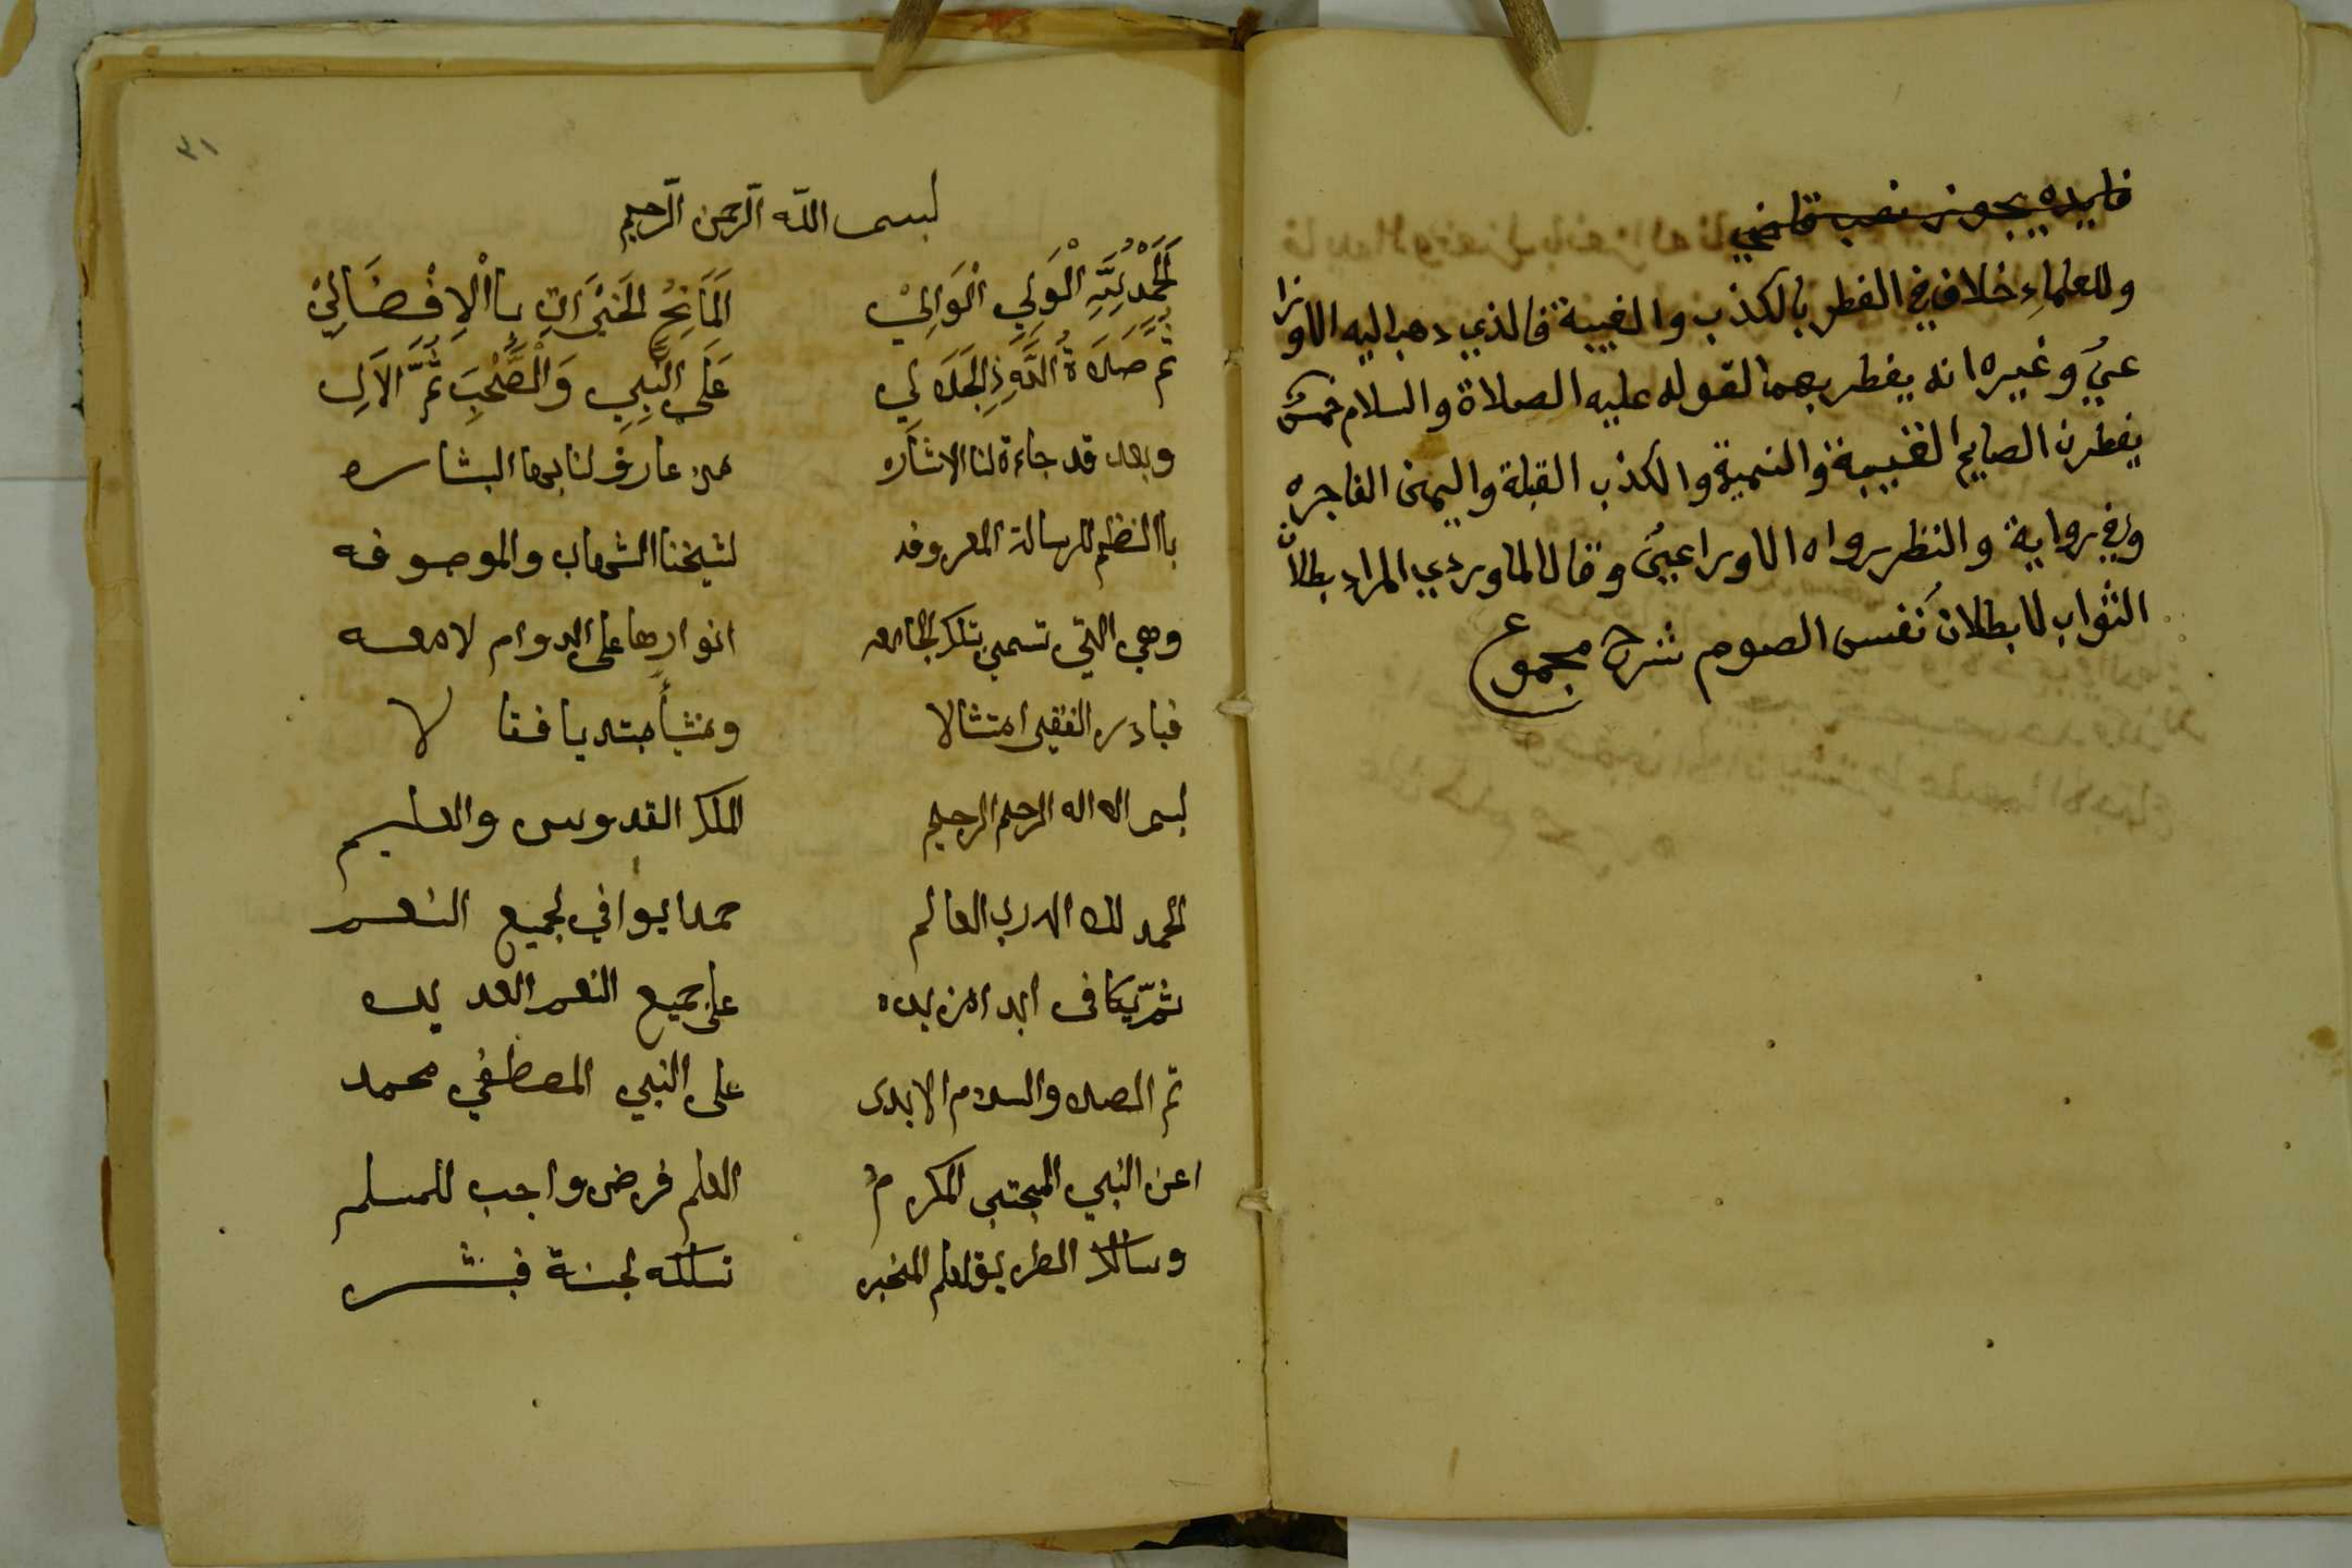 فايده يجوز نصب قاضي
وللعلماءِ خلاف في الفطر بالكذب والغيبة فالذي دهب اليه الاوزا
عي وغيره انه يفطر بهما لقوله عليه الصلاة والسلام خمس
يفطرن الصايم الغيبة والنميمة والكذب القبلة واليمين الفاجره
وفي رواية والنظر رواه الاوزاعي وقال الماوردي المراد بطلان
الثواب لا بطلان نفس الصوم شرح مجموع
٣١
بسم الله الرحمن الرحيم
اَلحَمْدُ لِلَّهِ الْوَلِي الْوَالِيْ اَلمَانِحُ الخَيْرَاتِ بِاْالْاِفْضَالِيْ
ثُمَّ صَلَاةُ اللَّهِ ذِالجَلَالِي عَلَى النَّبِي وَالْصَّحْبِ ثُمَّ الاَلِ
وبعد قد جاءة لنا الاشاره من عارف لنا بها البشاره
باالنظم للرسالة المعروفه لشيخنا الشهاب والموصوفه
وهي التي تسمى بتلك الجامعه انوارها على الدوام لامعه
فبادر الفقير امتثالا ومنشأ مبتديا فقا لا
بسم الاه اله الرحم الرحيم الملك القدوس والعليم
الحمد لله الله رب العالم حمدا يوافي لجميع النعم
ثم يكافى ابدا مزيده على جميع النعم العديده
ثم الصلاه والسلام الابدى على النبي المصطفي محمد
اعن النبي المجتبى المكرم العلم فرض واجب للمسلم
وسالك الطريق لعلم المخبر تسلكه لجنة فبشر